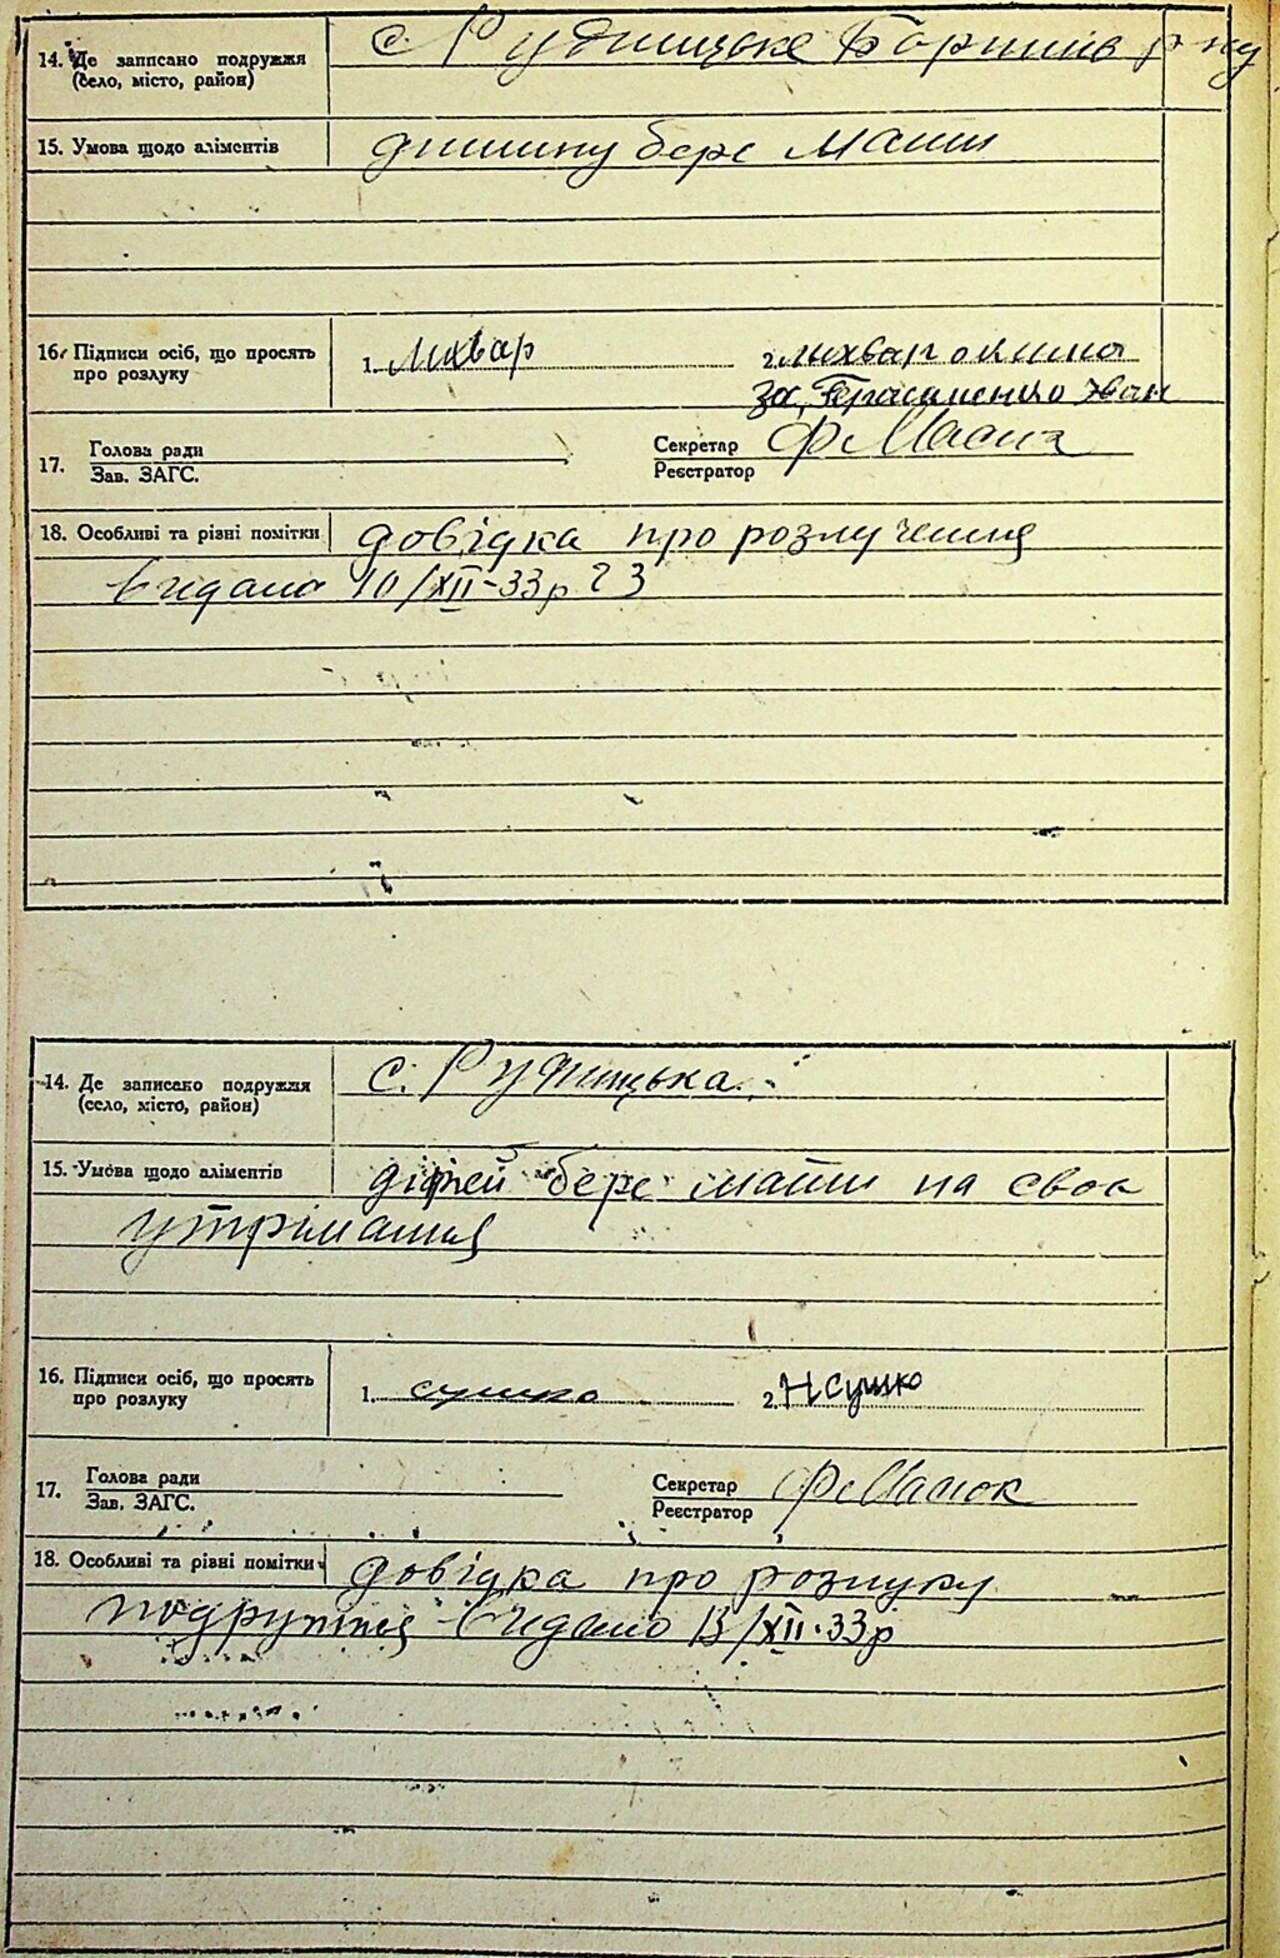 14. Де записано подружжя с. Рудницьке Баришів р-ну
(село, місто, район)
15. Умова щодо аліментів дитину бере мати
16. Підписи осіб, що просять 1. Лихвар 2. Лихвар
про розлуку за Герасименко Іван
17. Голова ради Секретар
Зав. ЗАГС. Реєстратор
18. Особливі та різні помітки довідка про розлучення
видана 10/XII-33р
14. Де записано подружжя с. Рудницька
(село, місто, район)
15. Умова щодо аліментів дітей бере мати на своє
утрімання
16. Підписи осіб, що просять 1. сушко 2. Н Сушко
про розлуку
17. Голова ради Секретар
Зав. ЗАГС. Реєстратор
18. Особливі та різні помітки довідка про розлуку
подружжя видано 13/XII-33р